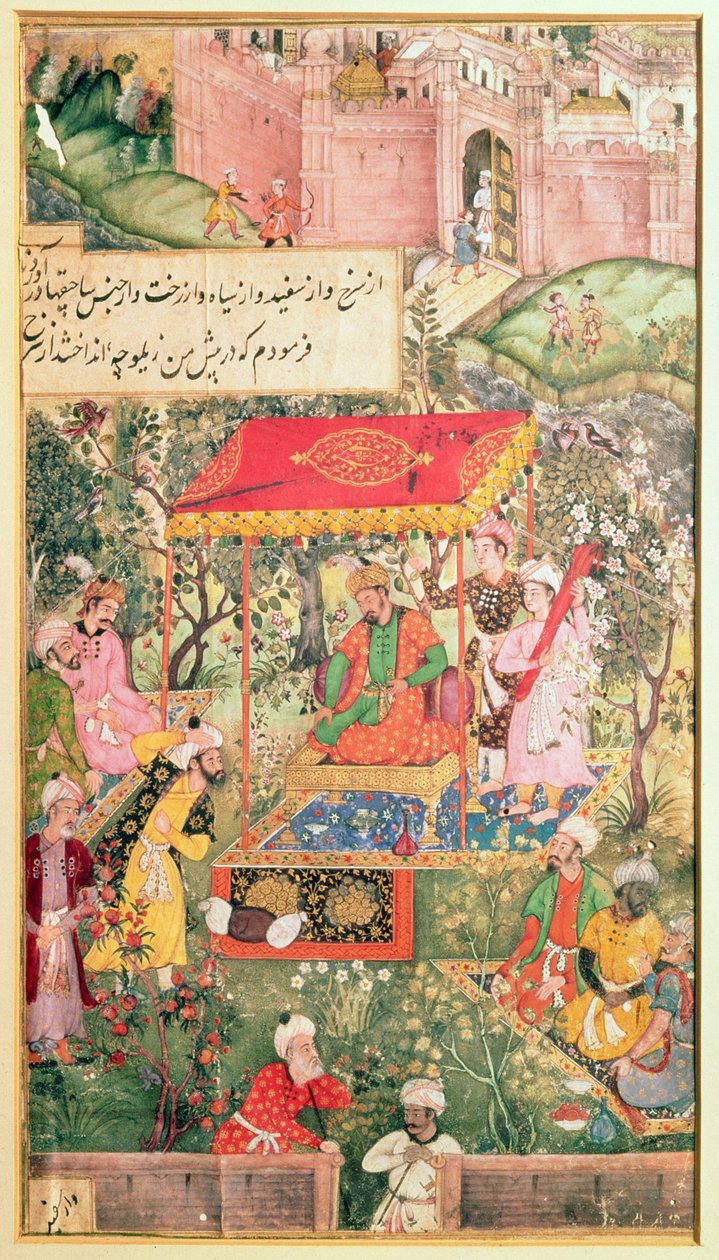 از سرخ و از سفید و از سیاه و از رخت و از جنس ساچقها در
فرمودم که در پیش من زیلوچه انداختند از سرخ
و از سفید